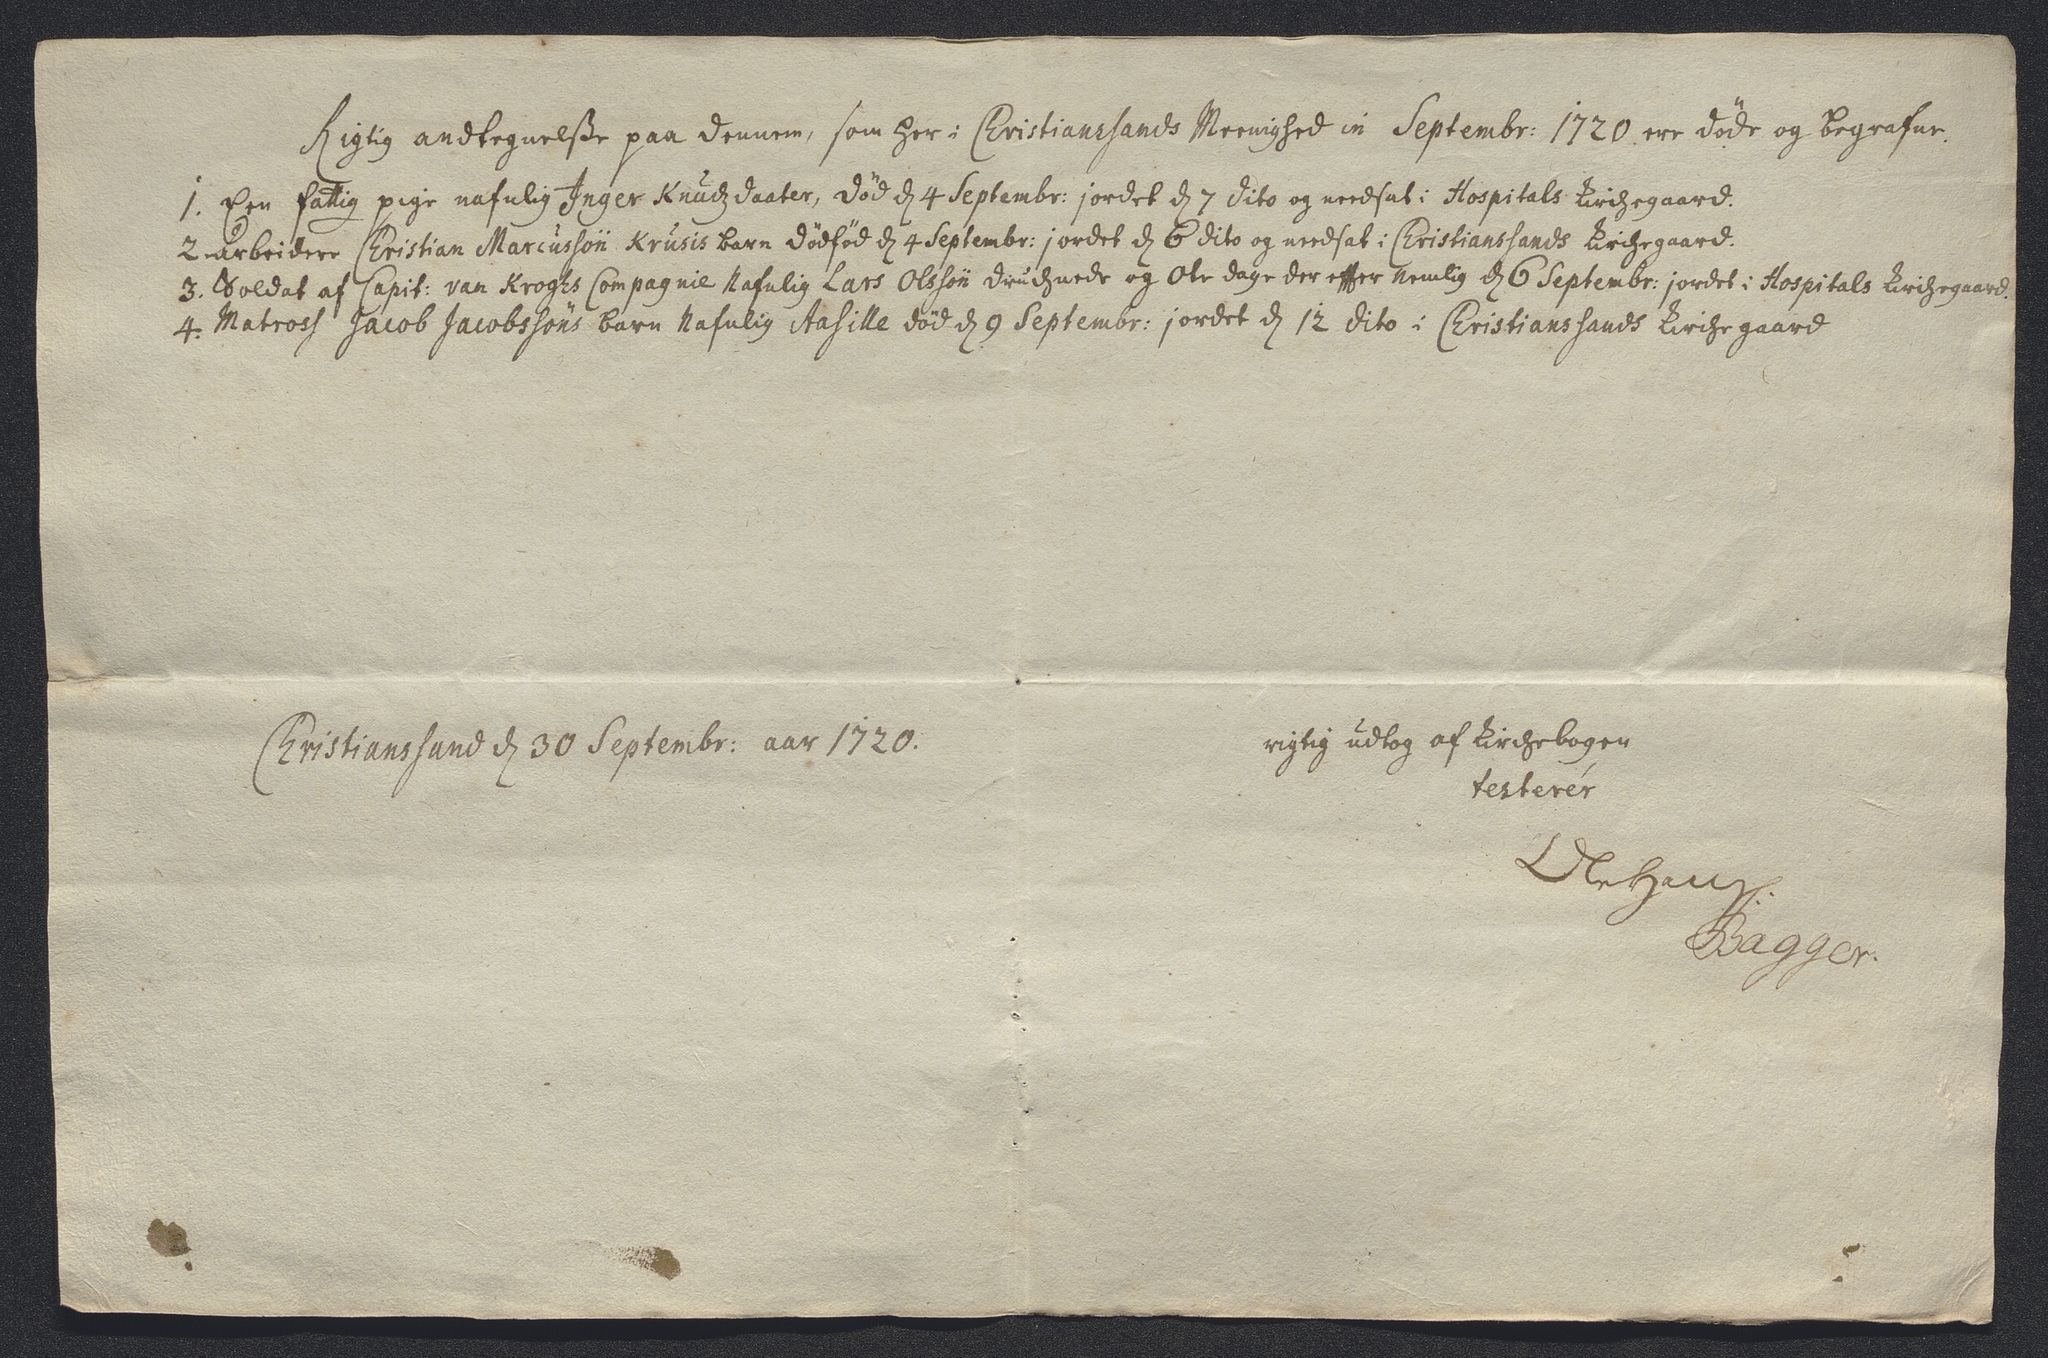 Rigtig andtegnelsse paa dennem, som her i Christianssands Meenighed in Septembr: 1720 ere døde og begrafne.
1. Een fattig pige nafnlig Inger Knudzdaater, død d 4 Septembr: jordet d 7 dito og needsat i Hospitals kirchegaard.
2. arbeidere Christian Marcussøn Krusis barn dødfød d 4 Septembr: jordet d 6 dito og needsat i Christianssands kirchegaard.
3. Soldat af Capit: van Kroghs Compagnie Nafnlig Lars Olssøn druchnede og Ote dage der effter Nemlig d 6 Septembr: jordet i Hospitals kirchegaard.
4. Matross Jacob Jacobssøns barn Nafnlig Aasille død d 9 Septembr: jordet d 12 dito i Christianssands kirchegaard
Christianssand d 30 Septembr: aar 1720.
rigtig udtog af kirchebogen
testerer
Ole Hanss:
Bagger.